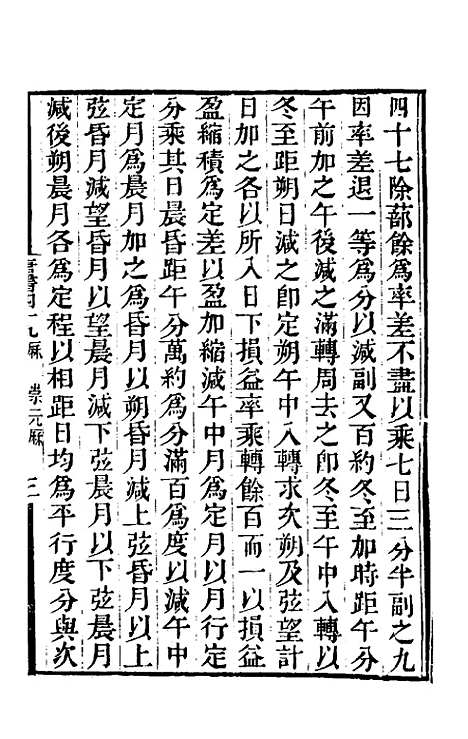 四十七除蔀餘爲率差不盡以乘七日三分半副之九
因率差退一等爲分以減副又百約冬至加時距午分
午前加之午後減之滿轉周去之卽冬至午中入轉以
冬至距朔日減之卽定朔午中入轉求次朔及弦望計
日加之各以所入日下損益率乘轉餘百而一以損益
盈縮積爲定差以盈加縮減午中月爲定月以月行定
分乘其日晨昏距午分萬約爲分滿百爲度以減午中
定月爲晨月加之爲昏月以朔昏月減上弦昏月以上
弦昏月減望昏月以望晨月減下弦晨月以下弦晨月
減後朔晨月各爲定程以相距日均爲平行度分與次
唐書四十九厤 崇元厤 三